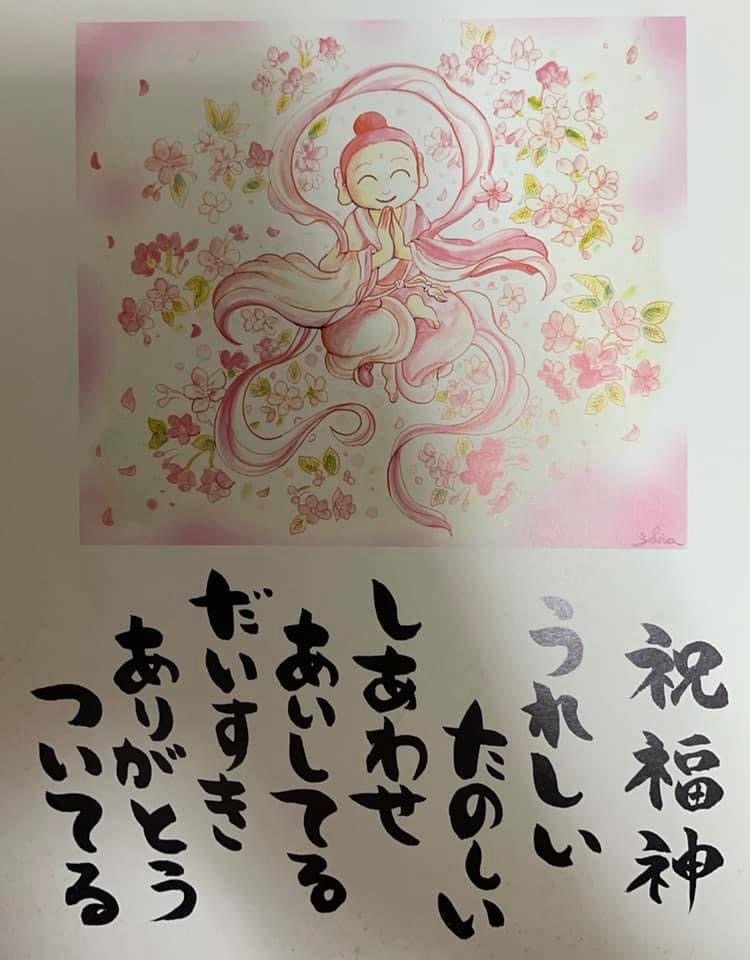 祝福神
うれしい
たのしい
しあわせ
あいしてる
だいすき
ありがとう
ついてる